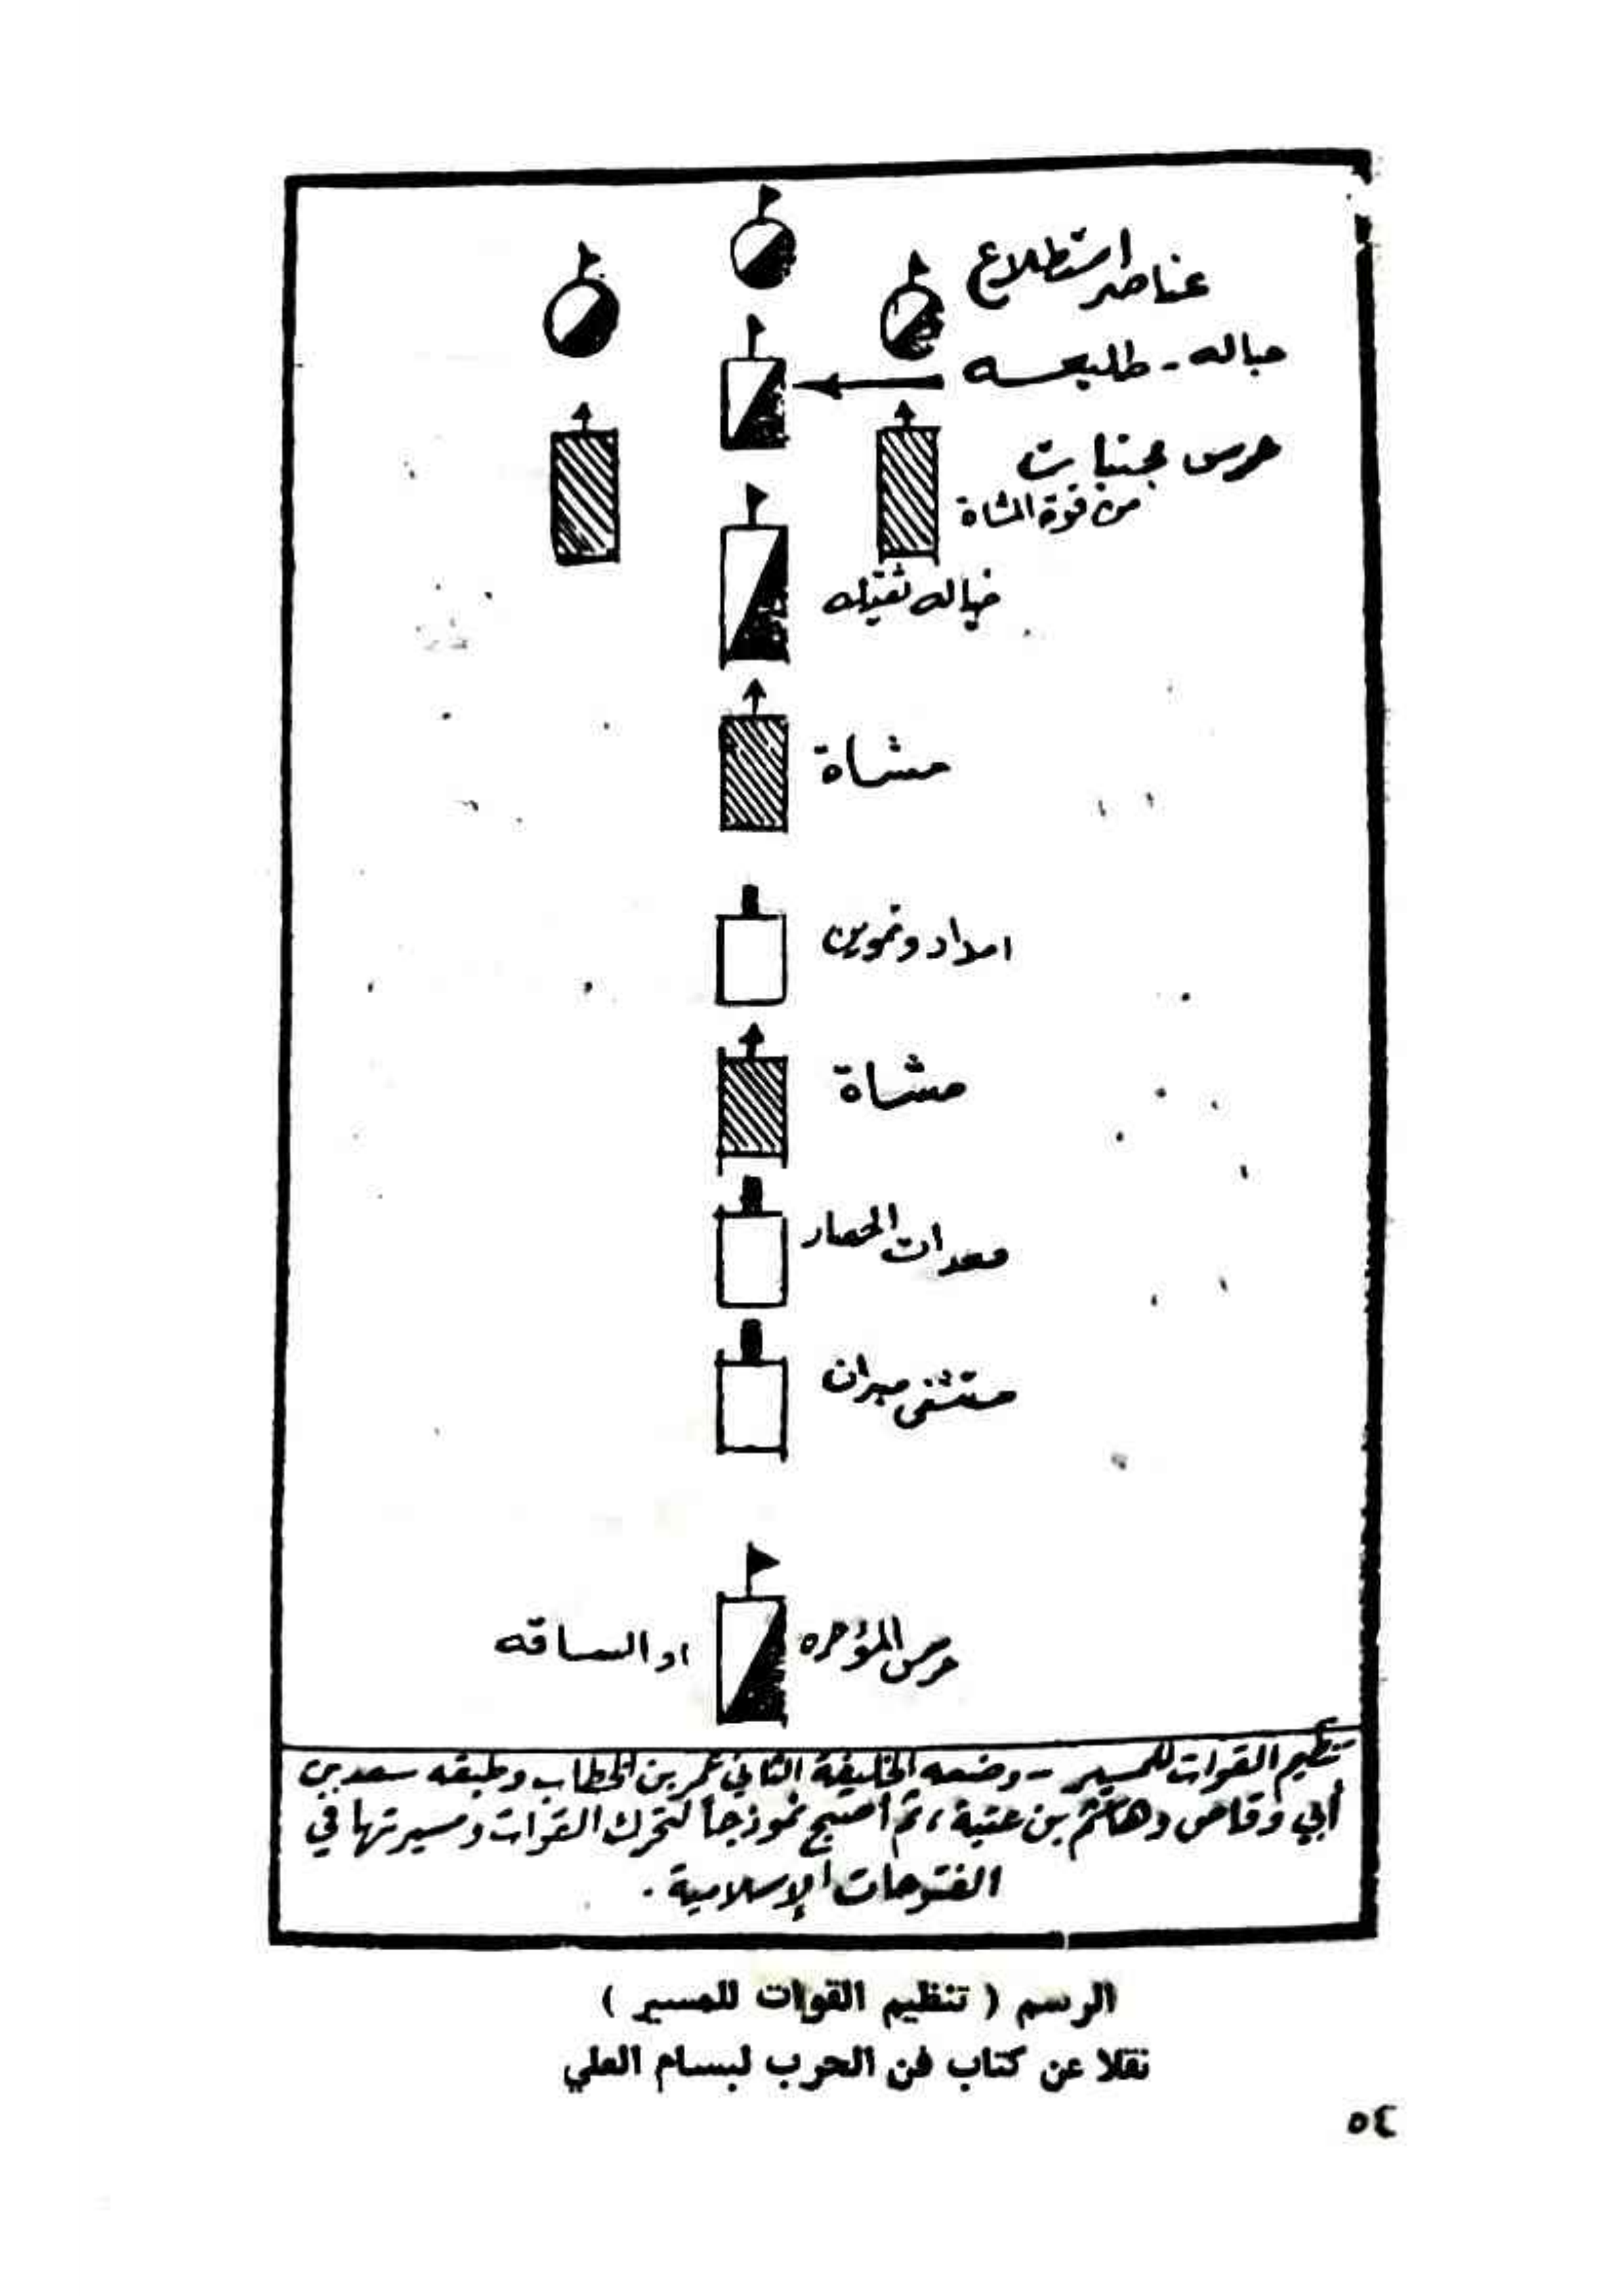 عناصر استطلاع
خياله - طليعــه
حرس مجنبات
من قوة المشاة
خياله ثقيله
مشاة
امداد وتموين
مشاة
معدات الحصار
مستشفى ميدان
حرس المؤخره
او الساقه
تنظيم القوات للمسير - وضعه الخليفة الثاني عمر بن الخطاب وطبقه سعد بن
أبي وقاص وهاشم بن عتبة ، ثم أصبح نموذجاً لتحرك القوات ومسيرتها في
الفتوحات الإسلامية .
الرسم ( تنظيم القوات للمسير )
نقلا عن كتاب فن الحرب لبسام العلي
٥٤